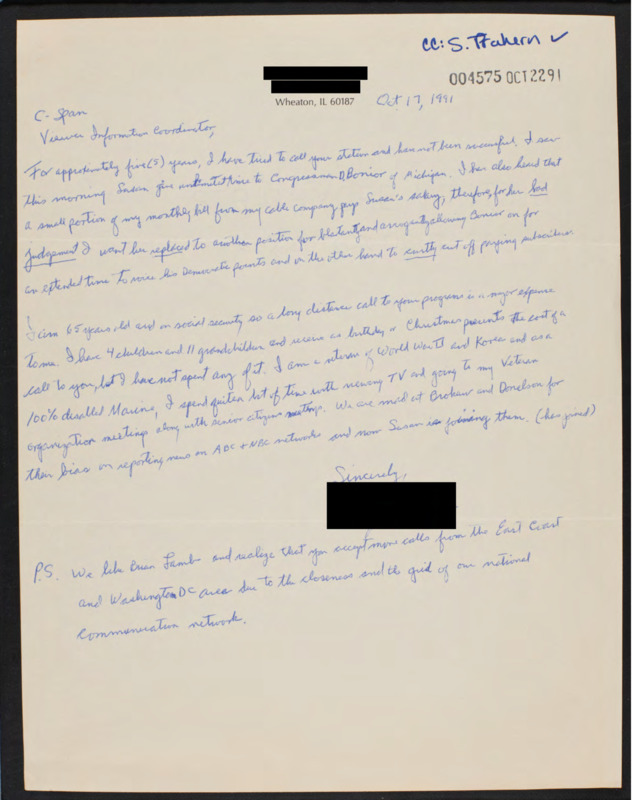 cc: S. Trahern ✓
004575 OCT 22 91
Wheaton, IL 60187
Oct. 17, 1991
C-Span
Viewer Information Coordinator,
For approximately five (5) years, I have tried to call your station and have not been successful. I saw
this morning Susan give unlimited time to Congressman D. Bonior of Michigan. I have also heard that
a small portion of my monthly bill from my cable company pays Susan's salary, therefore, for her bad
judgement I want her replaced to another position for blatantly and arrogantly allowing Bonior on for
an extended time to voice his Democratic points and on the other hand to curtly cut off paying subscribers
I am 65 years old and on social security so a long distance call to your program is a major expense
to me. I have 4 children and 11 grandchildren and receive as birthday or Christmas presents the cost of a
call to you, but I have not spent any of it. I am a veteran of World War II and Korea and as a
100% disabled Marine, I spend quite a lot of time with viewing TV and going to my Veteran
organization meetings along with senior citizens meetings. We are mad at Brokaw and Donelson for
their bias on reporting news on ABC + NBC networks and now Susan is joining them. (has joined)
Sincerely,
P.S. We like Brian Lamb and realize that you accept more calls from the East Coast
and Washington DC area due to the closeness and the grid of our national
communication network.